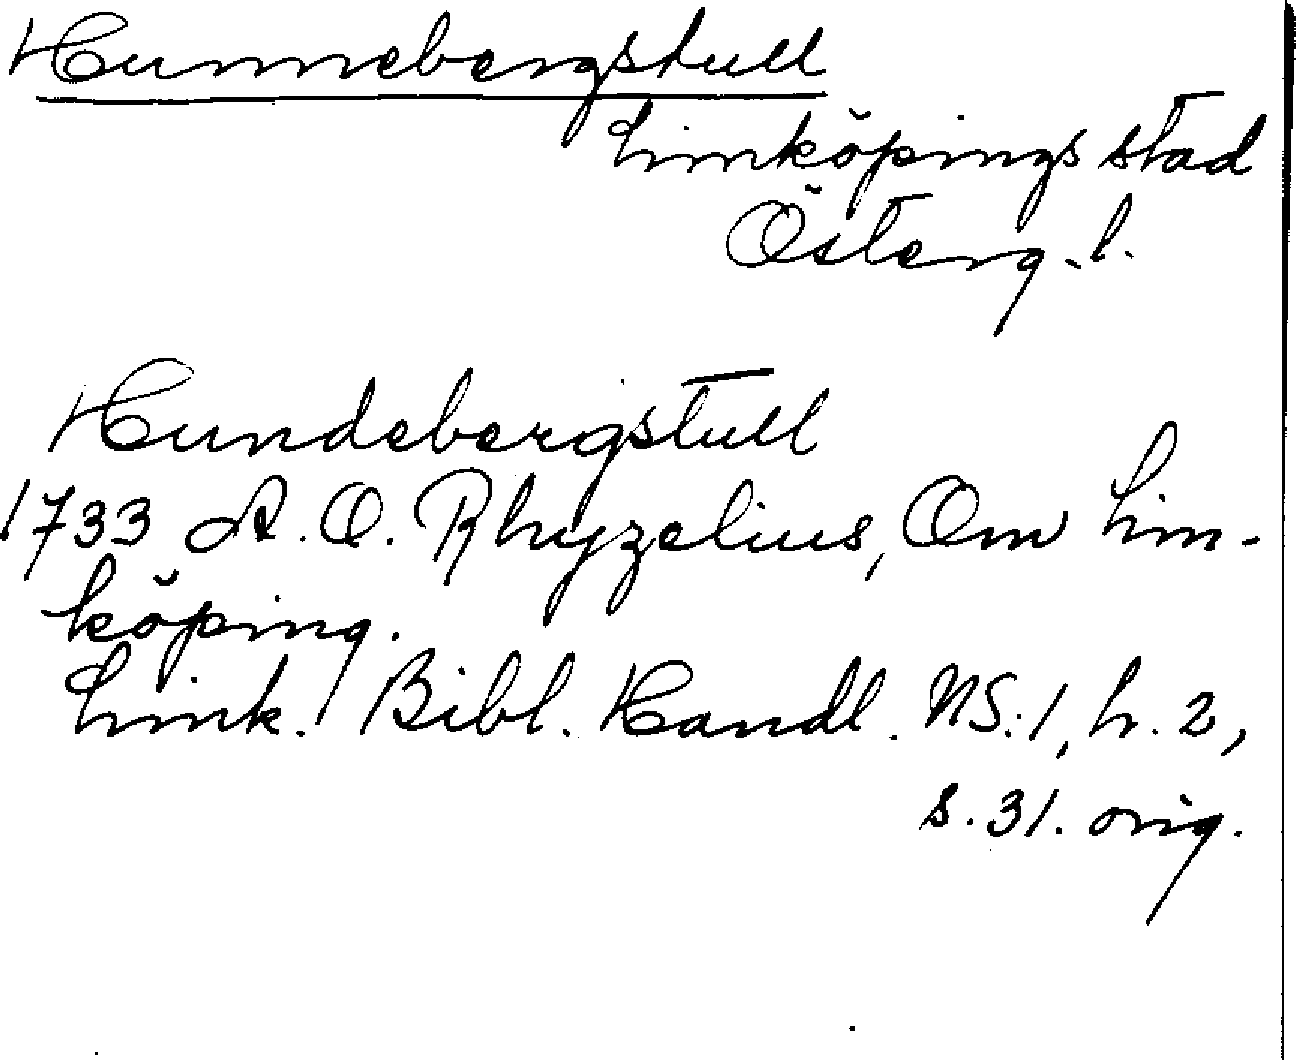 Hunnebergstull
Linköpings stad
Österg. l.
Hundebergstull
1733 A. O. Rhyzelius, Om Lin-
köping.
Link. Bibl. Handl. NS:1, h. 2,
s. 31. orig.